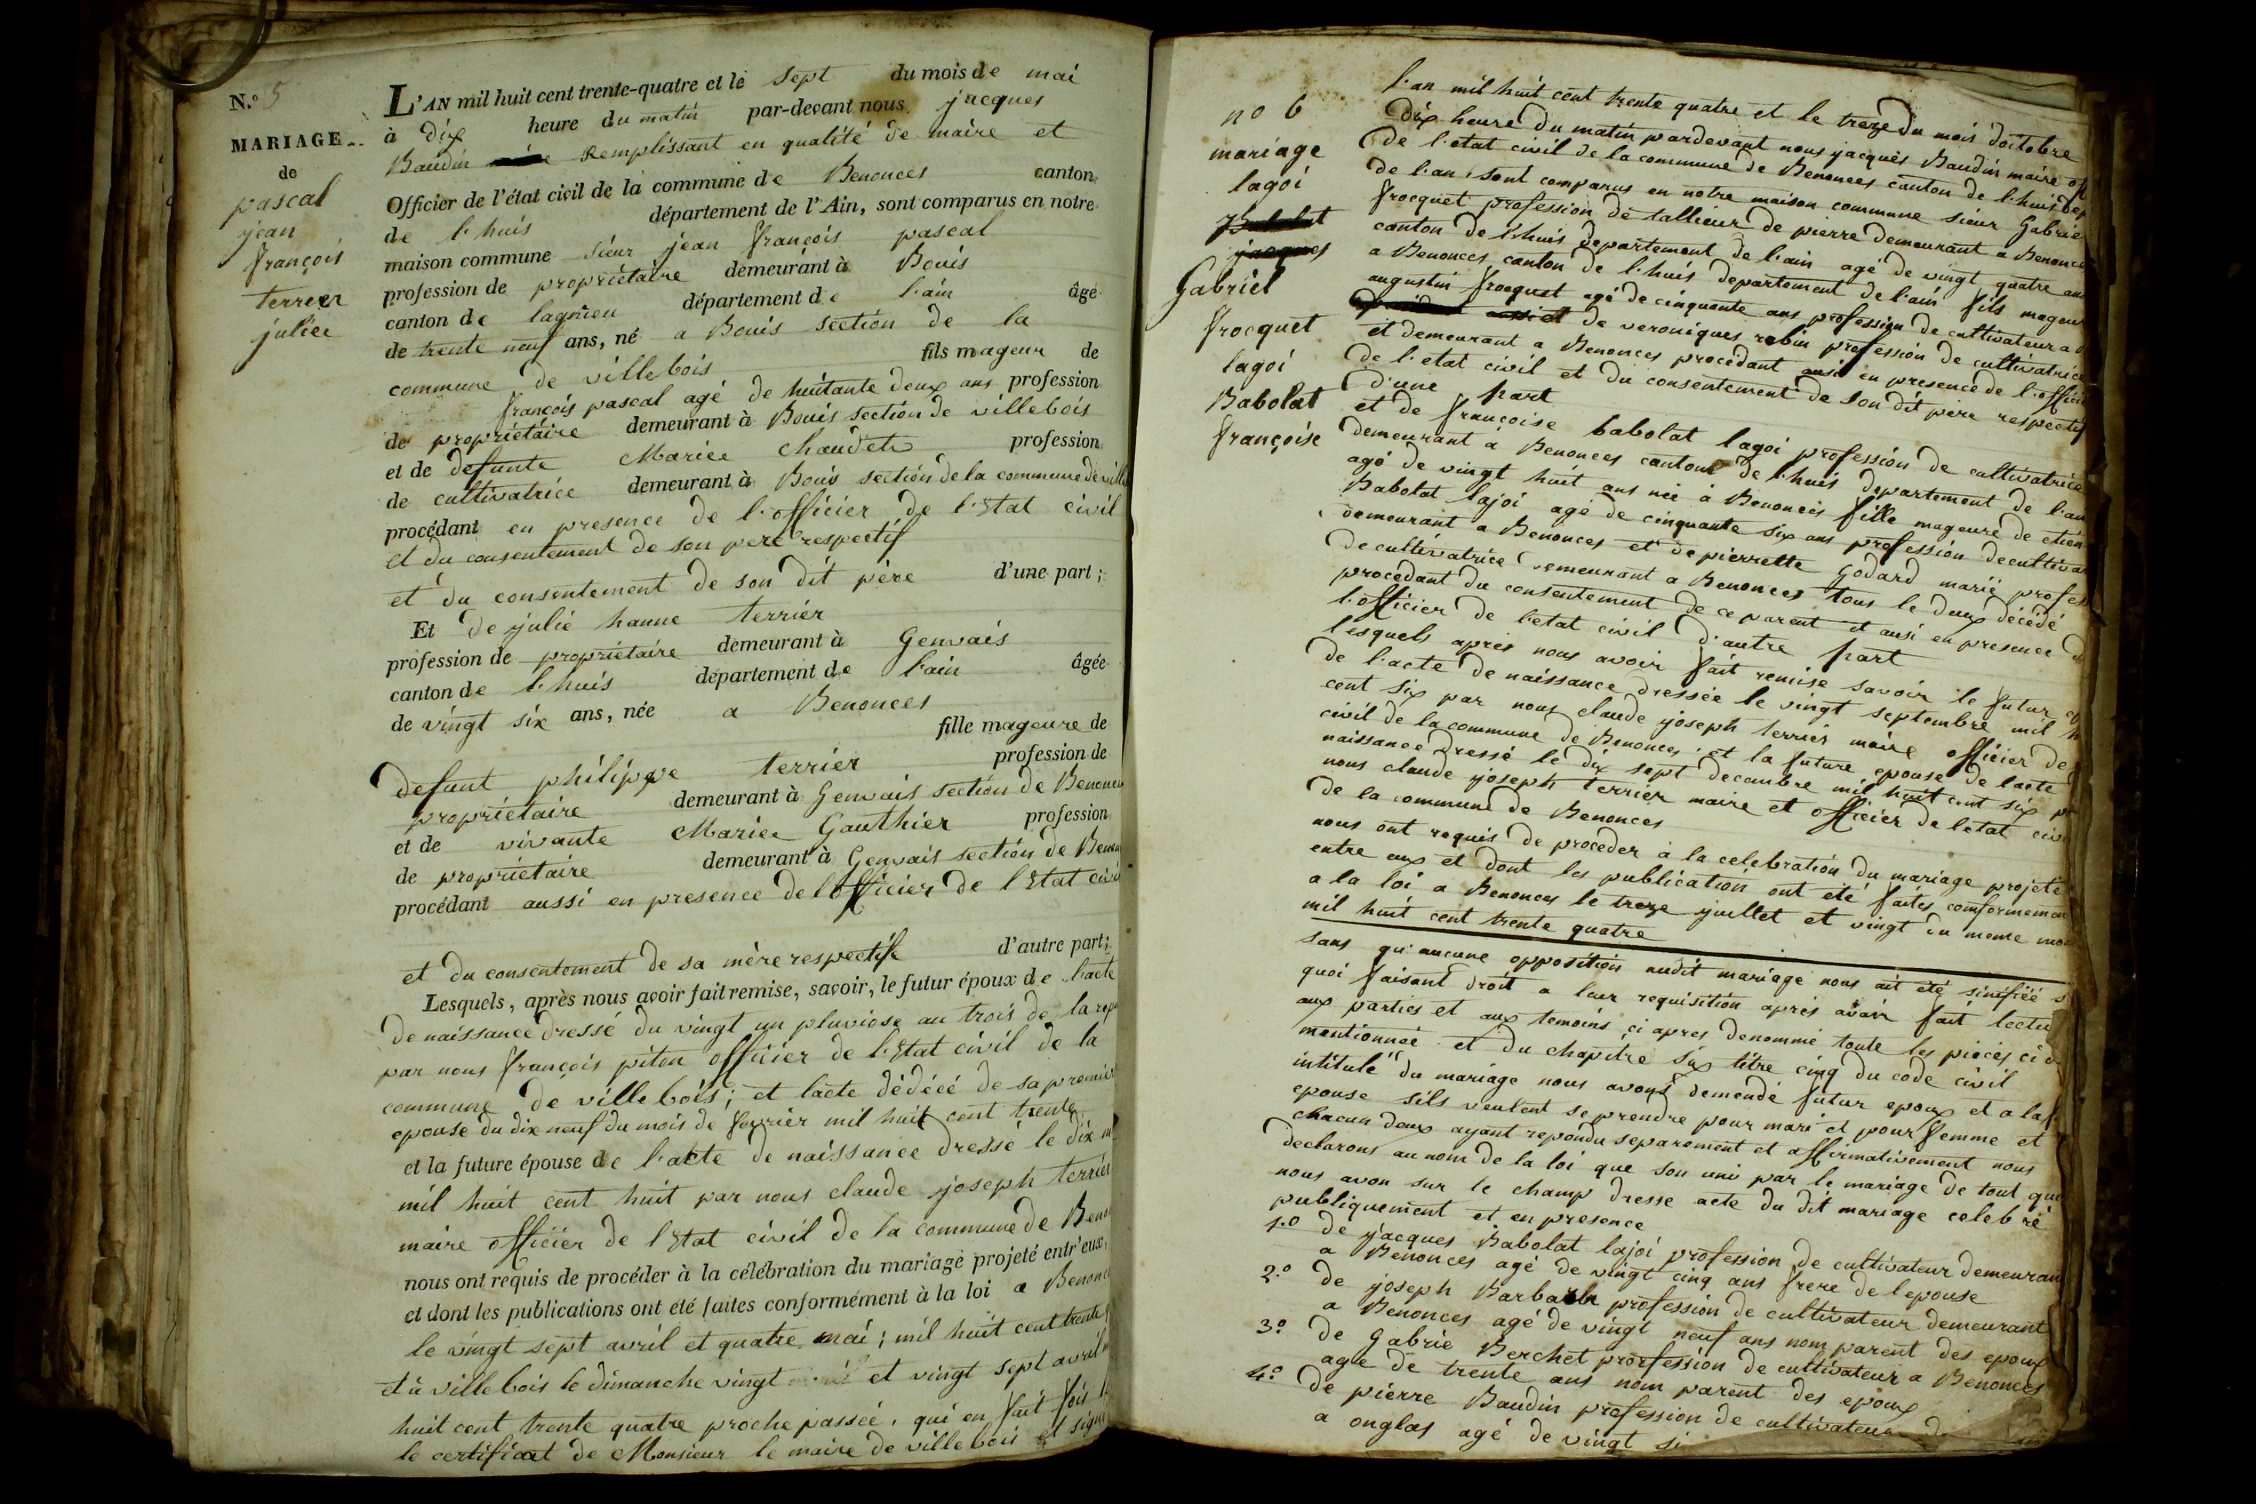 N.º 5
MARIAGE
de
pascal
jean
françois
terrier
juliee
L'AN mil huit cent trente-quatre et le sept du mois de mai
à dix heure du matin par-devant nous jacques
Baudin Remplissant en qualité de maire et
Officier de l'état civil de la commune de Benonces canton
de l.huis département de l'Ain, sont comparus en notre
maison commune sieur jean françois pascal
profession de propriétaire demeurant à Bouis
canton de lagnieu département de l.ain âgé
de trente neuf ans, né a Bouis section de la
commune de villebois fils mageur de
françois pascal agé de huitante deux ans profession
de propriétaire demeurant à Bouis section de villebois
et de defunte Mariee Chaudet profession
de cultivatrice demeurant à Bouis section de la commune de
procédant en presence de l.officier de l.Etat civil
et du consentement de son pere respectif
et du consentement de son dit père d'une part ;
Et de julie hanne terrier
profession de propriétaire demeurant à Gervais
canton de l.huis département de l.ain âgée
de vingt six ans, née a Benonces
fille mageure de
defunt philippe terrier profession de
propriétaire demeurant à Gervais section de Benonces
et de vivante Mariee Gauthier profession
de propriétaire demeurant à Gervais section de
procédant aussi en presence de lofficier de lEtat civil
et du consentement de sa mère respectife d'autre part ;
Lesquels, après nous avoir fait remise, savoir, le futur époux de l.acte
de naissance dressé du vingt un pluviose an trois de la
par nous françois piton officier de l.Etat civil de la
commune de villebois ; et lacte dédécé de sa
epouse du dix neuf du mois de fevrier mil huit cent trente
et la future épouse de l.acte de naissance dressé le dix
mil huit cent huit par nous claude joseph terrier
maire officier de lEtat civil de la commune de
nous ont requis de procéder à la célébration du mariage projeté entr'eux,
et dont les publications ont été faites conformément à la loi a
le vingt sept avril et quatre mai ; mil huit cent trente
et a villebois le dimanche vingt et vingt sept avril
huit cent trente quatre proche passée, qui en fait fois
le certificat de Monsieur le maire de villebois et
no 6
mariage
lagoi
Gabriel
frocquet
lagoi
Babolat
françoise
l.an mil huit cent trente quatre et le treze du mois doctobre
dix heure du matin pardevant nous jacques Baudin maire
de l.etat civil de la commune de Benonces canton de l.huis
de l.an, sont comparus en notre maison commune sieur
frocquet profession de tallieur de pierre demeurant a
canton de l.huis departement de l.ain agé de vingt quatre
a Benonces canton de l.huis departement de l.ain fils
augustin frocquet agé de cinquante ans profession de cultivateur
de veroniques robin profession de cultivatrice
et demeurant a Benonces procedant ausi en presence de
de l.etat civil et du consentement de son dit père
d'une part
et de françoise babolat lagoi profession de cultivatrice
demeurant à Benonces canton de l.huis departement de
agé de vingt huit ans née à Benonces fille mageure de
Babolat lajoi agé de cinquante six ans profession
demeurant a Benonces et de pierrette Godard marié
de cultivatrice demeurant a Benonces tous le deux décédé
procedant du consentement de ce parent et ausi en presence
l.officier de letat civil d'autre part
lesquels après nous avoir fait remise savoir le futur
de l.acte de naissance dressée le vingt septembre mil
cent six par nous claude joseph terrier maire officier de
civil de la commune de Benonces ; et la future epouse de lacte
naissance dressé le dix sept decembre mil huit cent six
nous claude joseph terrier maire et officier de letat
de la commune de Benonces
nous ont requis de proceder à la celebration du mariage projeté
entre eux et dont les publication ont été faites
a la loi a Benonces le treze juillet et vingt du meme
mil huit cent trente quatre
sans qu'aucune opposition audit mariage nous ait été
quoi faisant droit a leur requisition après avoir fait
aux parties et aux temoins ci apres denommé toute les pièces ci
mentionnée et du chapitre six titre cinq du code civil
intitulé du mariage nous avons demendé futur epoux et a
epouse sils veulent se prendre pour mari et pour femme et
chacun deux ayant repondu separement et affirmativement nous
declarons au nom de la loi que son uni par le mariage de tout
nous avon sur le champ dresse acte du dit mariage celebré
publiquement et en presence
1.º de jacques Babolat lajoi profession de cultivateur
a Benonces agé de vingt cinq ans frere de lepouse
2.º de joseph profession de cultivateur demeurant
a Benonces agé de vingt neuf ans nom parent des epoux
3.º de Gabrie Berchet profession de cultivateur a Benonces
age de trente ans nom parent des epoux
4.º de pierre Baudin profession de cultivateur
a onglas agé de vingt